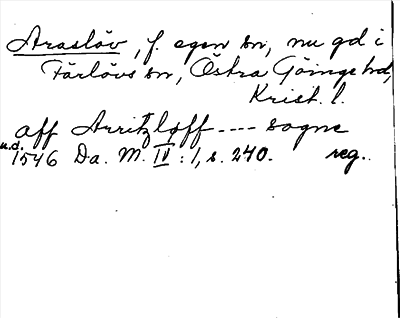 Araslöv, f. egen sn, nu gd i
Färlövs sn, Östra Göinge hd,
Krist. l.
aff Arritzløff ---- sogne
u.d. 1546 Da. M. IV : 1, s. 240. reg.